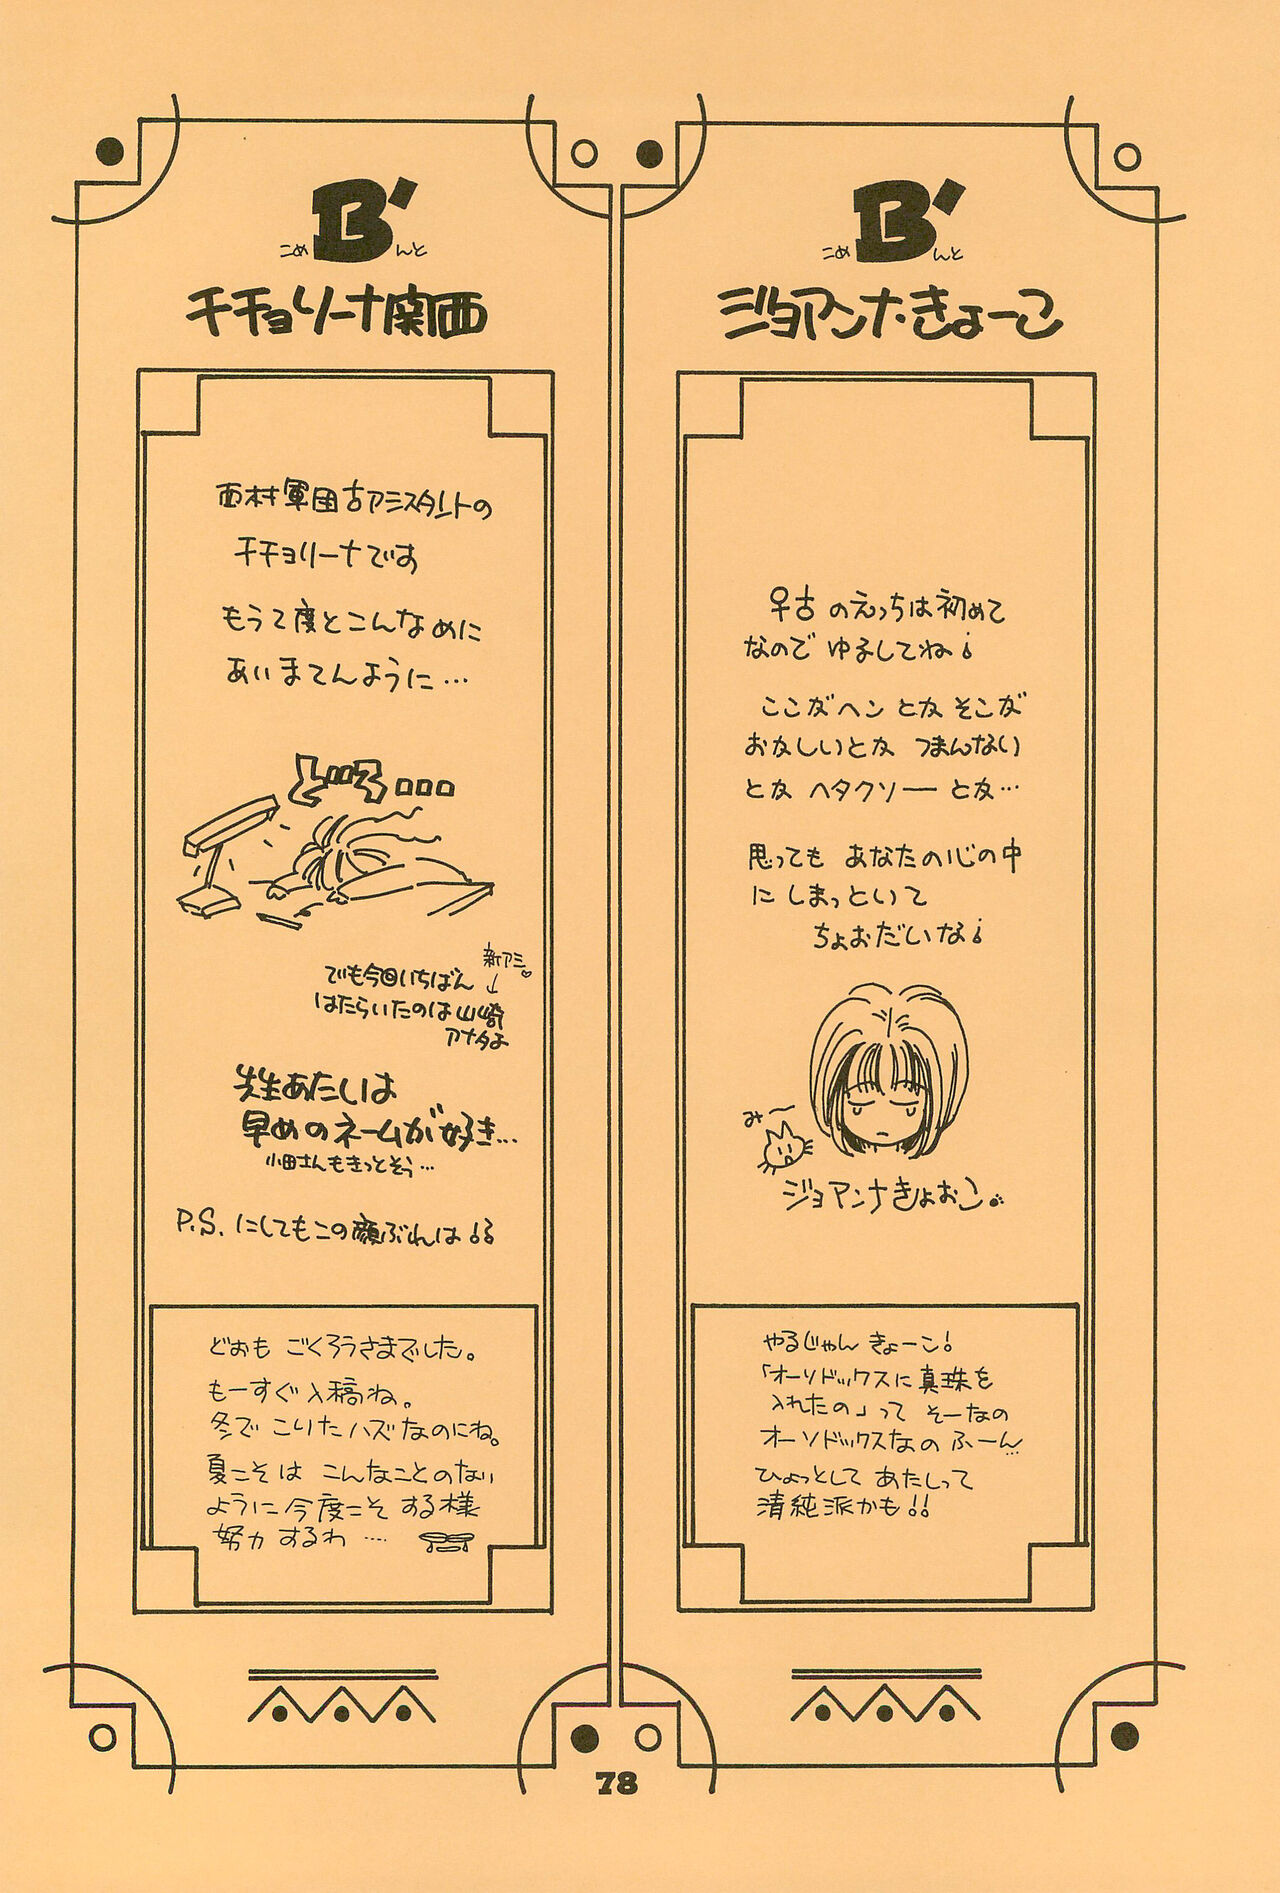 B'
こめんと
ジョアンナ・きょーこ
早古 のえっちは初めて
なので ゆるしてね!
ここがヘン とか そこが
おかしいとか つまんない
とか ヘタクソー とか…
思っても あなたの心の中
に しまっといて
ちょおだいな!
みー
ジョアンナきょおこ。
やるじゃん きょーこ!
「オーソドックスに真珠を
入れたの」って そーなの
オーソドックスなの ふーん…
ひょっとして あたしって
清純派かも!!
B'
こめんと
チチョリーナ関西
西村軍団古アシスタントの
チチョリーナです
もう2度とこんなめに
あいませんように…
どろ...
新アシ♡
↓
でも今回いちばん
はたらいたのは山崎
アナタよ
先生あたしは
早めのネームが好き…
小田さんもきっとそう…
P.S. にしてもこの顔ぶれは!!
どおも ごくろうさまでした。
もーすぐ入稿ね。
冬で こりたハズなのにね。
夏こそは こんなことのない
ように今度こそ する様
努力するわ ....
78